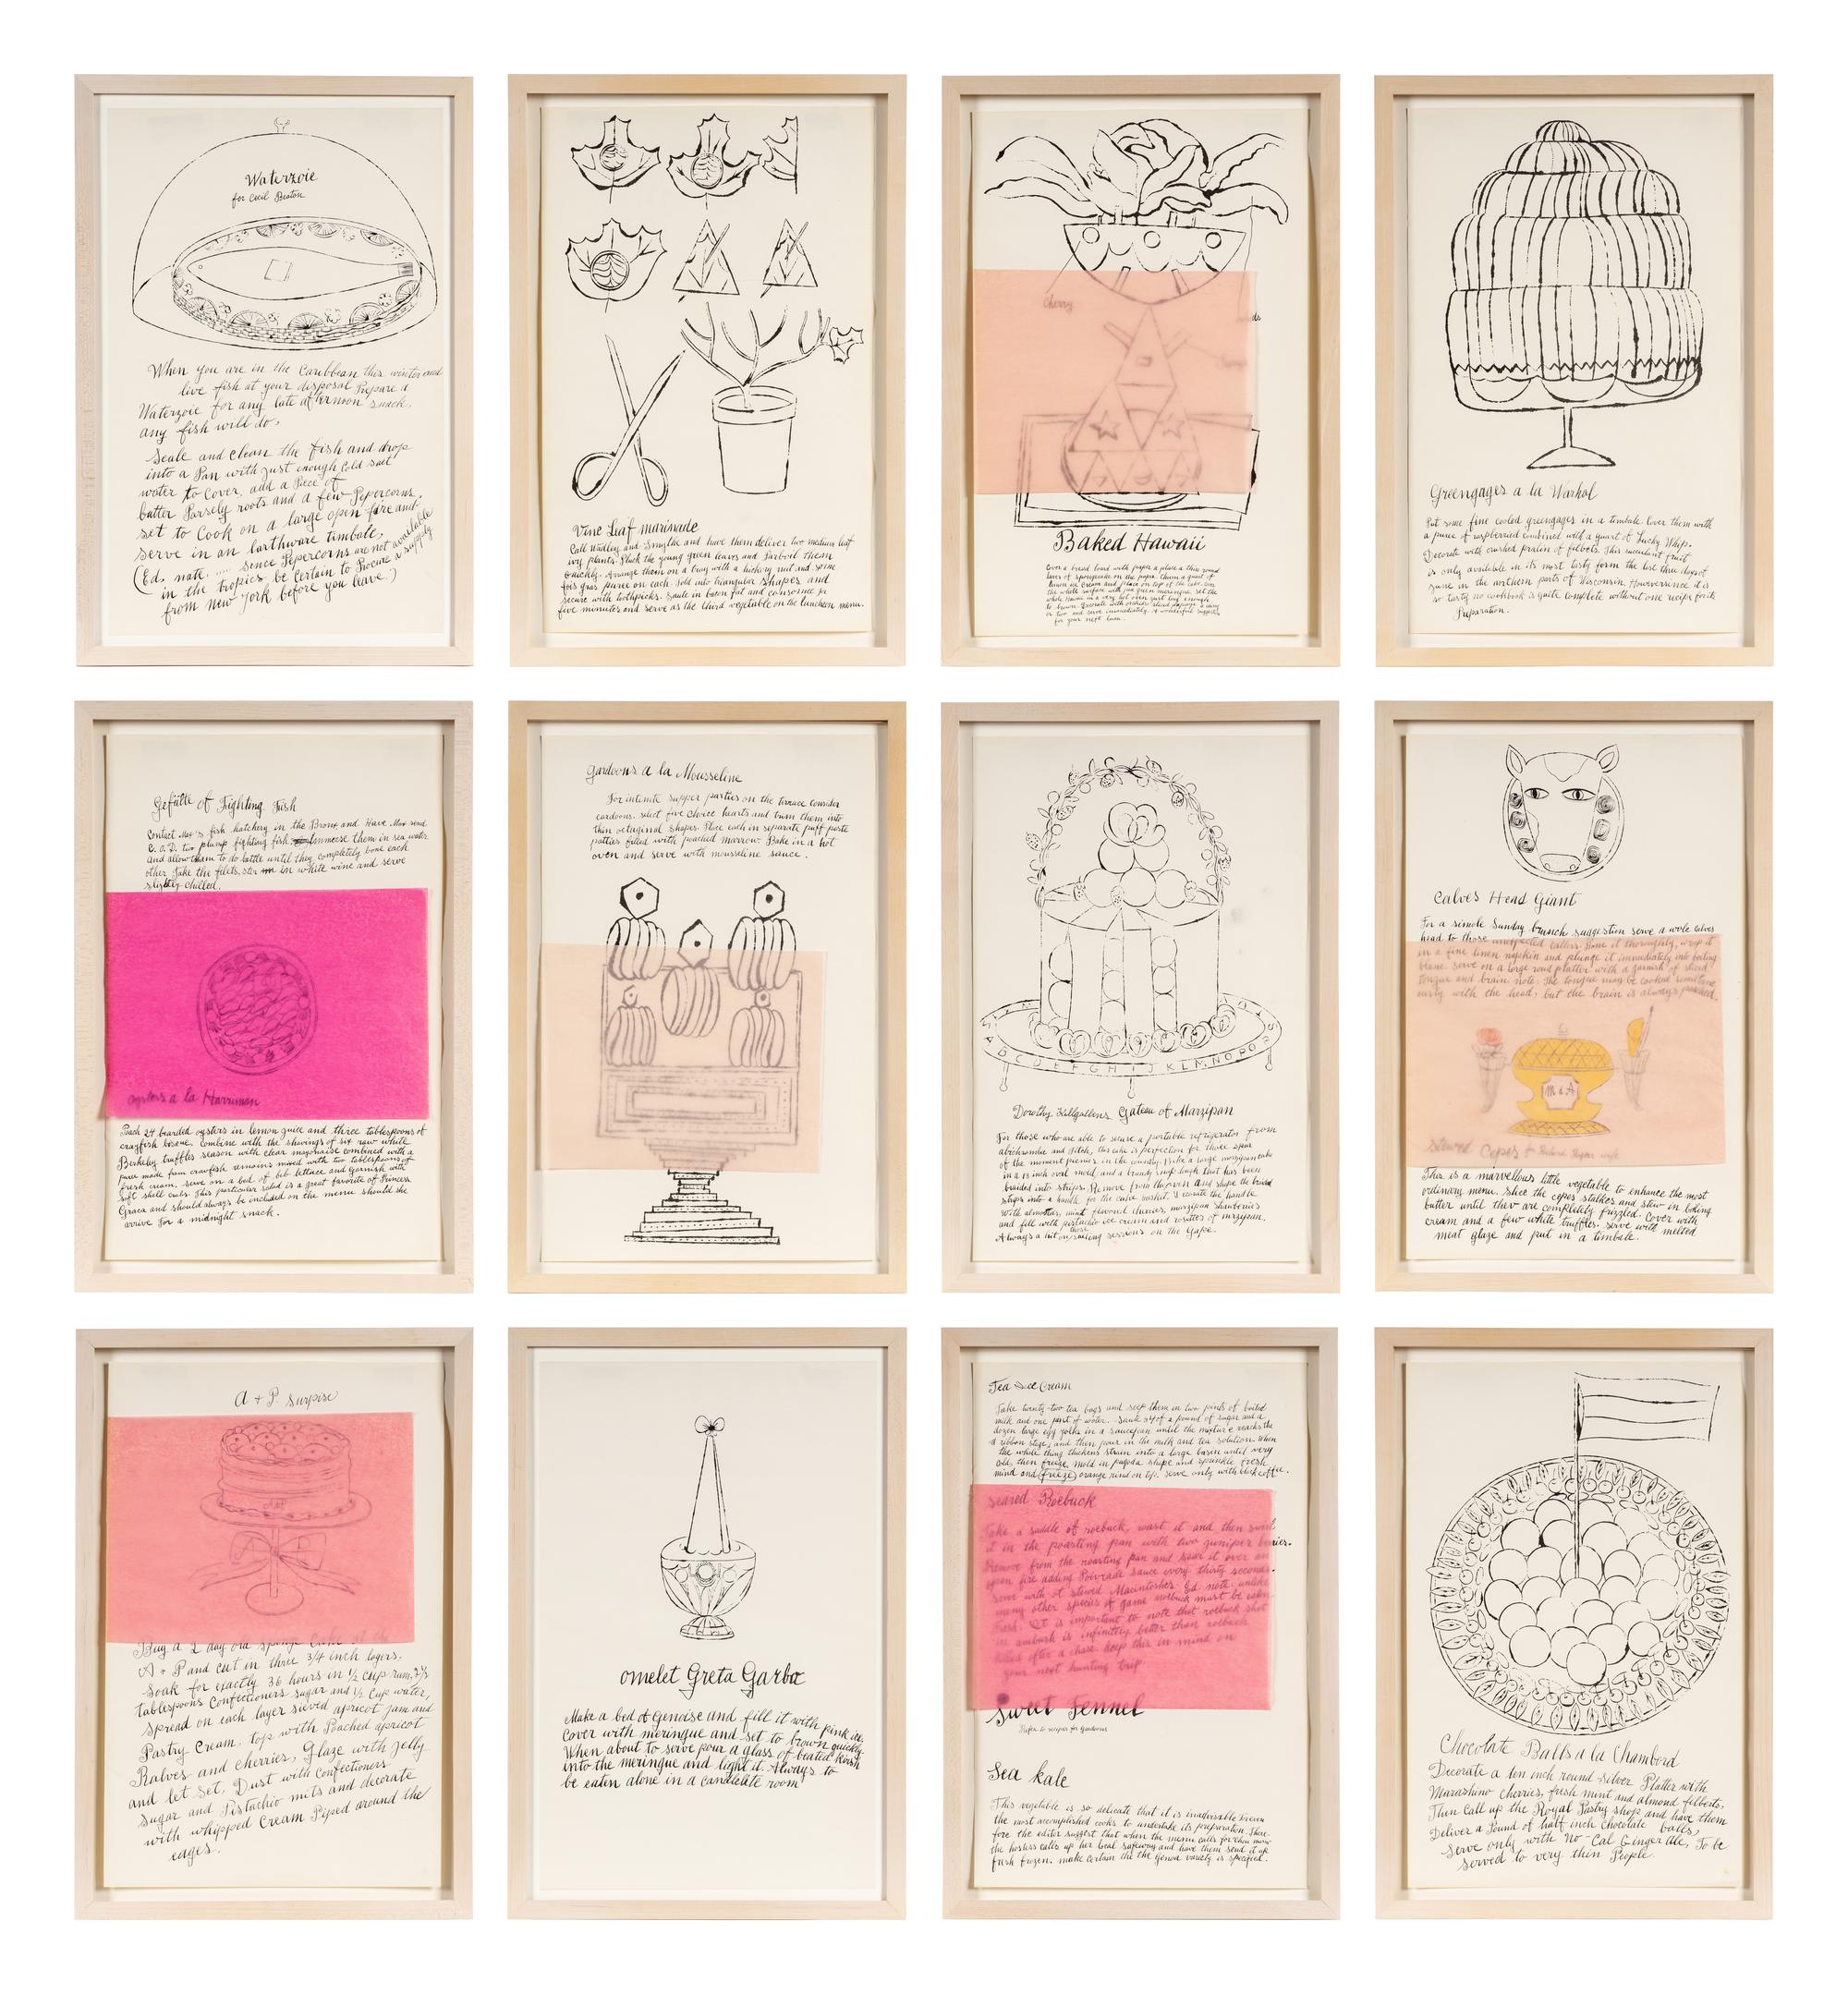 Waterzoie
for Cecil Beaton
When you are in the Caribbean this winter and
live fish at your disposal Prepare a
Waterzoie for any late afternoon snack.
any fish will do.
Scale and clean the fish and drop
into a Pan with just enough Cold salt
water to Cover, add a Piece of
butter Parsely roots and a few Pepercorns.
set to Cook on a large open fire and
serve in an earthware timbale,
(Ed. note ..... since Pepercorns are not available
in the tropics be certain to Procure a supply
from New York before you leave.)
Vine Leaf marinade
Call Wadley and Smythe and have them deliver two medium leaf
ivy plants. Pluck the young green leaves and Parboil them
quickly. Arrange them on a tray with a hickory nut and some
fois gras puree on each. fold into triangular shapes and
secure with toothpicks. Saute in bacon fat and consommé for
five minutes and serve as the third vegetable on the luncheon menu.
Cherry
Baked Hawaii
Cover a bread board with paper a place a thick round
layer of spongecake on the paper.
the whole surface with pea green meringue. set the
whole Hawaii in a very hot oven just long enough
to brown. Decorate with
or two and serve immediately. A wonderful
for your next luau.
Greengages a la Warhol
Put some fine cooled greengages in a timbale. Cover them with
a puree of raspberries combined with a quart of Lucky Whip.
Decorate with crushed pralin of filberts. This succulent fruit
is only available in its most tasty form the last three days of
June in the northern parts of Wisconsin. However since it is
so tasty no cookbook is quite complete without one recipe for its
Preparation.
Gefilte of Fighting Fish
Contact Max's fish hatchery in the Bronx and Have Max send
C.O.D. two plump fighting fish. Immeese them in sea water
and allow them to do battle until they completely bone each
other. Take the filets, in white wine and serve
slightly chilled.
oysters a la Harriman
Poach 24 bearded oysters in lemon juice and three tablespoons of
crayfish bisque. combine with the shavings of six raw white
Berkeley truffles season with clear mayonaise combined with a
puree made from crawfish remains mixed with two tablespoons of
fresh cream. serve on a bed of bib lettace and garnish with
soft shell crabs. This particular salad is a great favorite of Princess
Graca and should always be included on the menu should she
arrive for a midnight snack.
Gardoons a la Mousseline
For intimite supper parties on the terrace consider
cardoons. select five choice hearts and turn them into
thin octaginal shapes. Place each in separate puff paste
patties filled with poached marrow. Bake in a hot
oven and serve with mousseline sauce.
A B C D E F G H I J K L M N O P Q R
Dorothy Killgallens Gateau of Marzipan
For those who are able to secure a portable refrigerator from
abercrombe and fitch, this cake is perfection for those spur
of the moment picnics in the country. Bake a large marzipan cake
in a 11 inch oval mold and a bready dough that has been
braided into strips. Remove from the oven and shape the braided
strips into a handle for the cake basket. Decorate the handle
with almonds, mint flavored cherries, marzipan strawberries
and fill with pistachio ice cream and rosettes of marzipan.
Always a hit on those sailing sessions on the Cape.
Calves Head Giant
For a simole Sunday brunch suggestion serve a whole calves
head to those unexpected callers. Bone it thoroughly, wrap it
in a fine linen napkin and plunge it immediately into boiling
blanc. serve on a large round platter with a garnish of sliced
tongue and brain. note: The tongue may be cooked simultane
ously with the head, but the brain is always poached.
M & A
Stewed Cepes
This is a marvellous little vegetable to enhance the most
ordinary menu. slice the cepes stalkes and stew in boking
butter until they are completely frizzled. Cover with
cream and a few white truffles. serve with melted
meat glaze and put in a timbale.
A + P. Surpise
Buy a 2 day old sponge Cake at the
A + P and cut in three 3/4 inch layers.
Soak for exactly 36 hours in 1/2 cup rum, 2 1/2
tablespoons Confectioners sugar and 1/2 Cup water,
Spread on each layer sieved apricot jam and
Pastry Cream. top with Poached apricot
Halves and Cherries, Glaze with Jelly
and let set. Dust with Confectioners
sugar and Pistachio nuts and decorate
with whipped Cream Piped around the
edges.
omelet Greta Garbo
Make a bed of Genoise and fill it with pink ice.
Cover with meringue and set to brown quickly.
When about to serve pour a glass of heated Kirsh
into the meringue and light it. Always to
be eaten alone in a candlelite room
Tea Ice Cream
Take twenty-two tea bags and seep them in two pints of boiled
milk and one part of water. 3/4 of a pound of sugar and a
dozen large egg yolks in a saucepan until the mixture reaches the
ribbon stage, and then pour in the milk and tea solution. When
the whole thing thickens strain into a large basin until very
cold, then freeze, mold in pagoda shape and sprinkle fresh
mind and (freeze) orange rind on top. serve only with black coffee.
Seared Roebuck
Take a saddle of roebuck, roast it and then swirl
it in the roasting pan with two juniper berries.
Remove from the roasting pan and sear it over an
open fire adding Poivrade sauce every thirty seconds.
serve with ot stewed Macintoshes. Ed note unlike
many other species of game roebuck must be eaten
fresh. It is important to note that roebuck shot
in ambush is infinitely better than roebuck
killed after a chase. keep this in mind on
your next hunting trip.
Sweet Fennel
Refer to recipes for Gardoons
Sea kale
This vegetable is so delicate that it is inadvisable for even
the most accomplished cooks to undertake its preparation. There-
fore the editor suggest that when the menu calls for
the hostess calls up her local safeway and have them send it up
fresh frozen. make certain the the Genoa variety is specified.
Chocolate Balls a la Chambord
Decorate a ten inch round silver Platter with
Marashino Cherries, fresh mint and almond filberts,
Then Call up the Royal Pastry shop and have them
Deliver a Pound of half inch Chocolate balls,
Serve only with No-Cal Ginger Ale, To be
Served to very thin People.